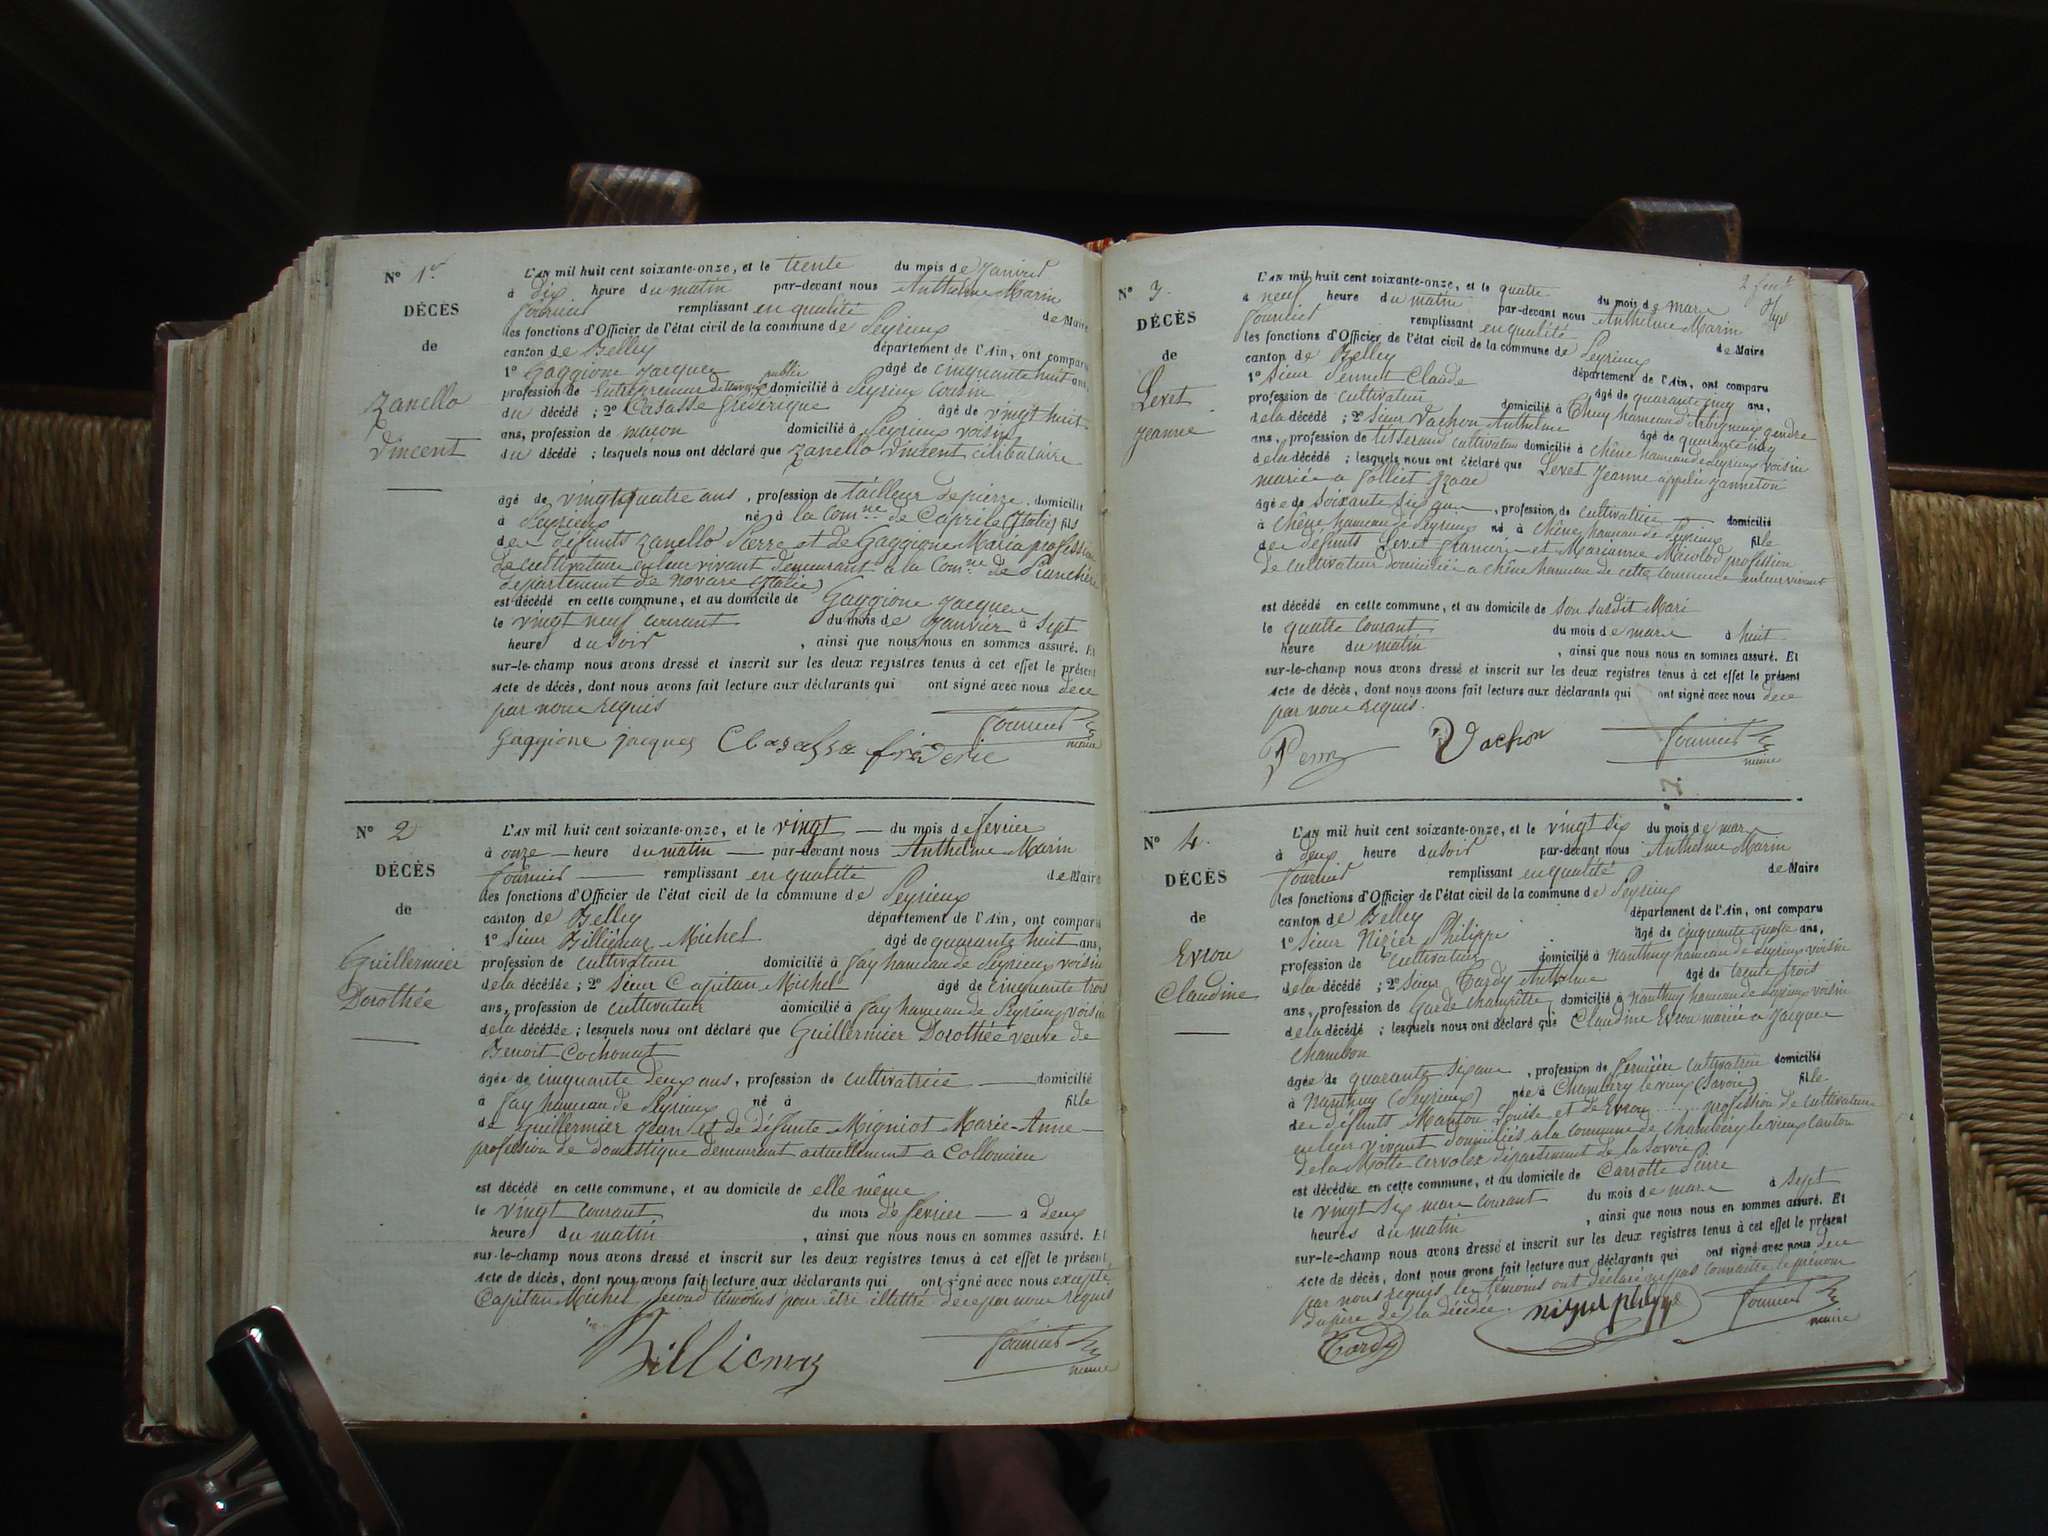 N° 1er
DÉCÈS
de
Zanello
Vincent
L'AN mil huit cent soixante-onze, et le trente du mois de Janvier
à dix heure du matin par-devant nous Anthelme Marin
Fournier remplissant en qualité de Maire
les fonctions d'Officier de l'état civil de la commune de Peyrieux
canton de Belley département de l'Ain, ont comparu
1° Gaggione Jacques âgé de cinquante huit ans,
profession de Entrepreneur de travaux public domicilié à Peyrieux cousin
du décédé ; 2° Casasse Fréderique âgé de vingt huit
ans, profession de maçon domicilié à Peyrieux voisin
du décédé ; lesquels nous ont déclaré que Zanello Vincent célibataire
âgé de vingt quatre ans, profession de tailleur de pierre domicilié
à Peyrieux né à la Comne de Caprile (Italie) fils
de défunts Zanello Pierre et de Gaggione Maria profession
de cultivateur en leur vivant demeurant à la Comne de
département de novare Italie
est décédé en cette commune, et au domicile de Gaggione Jacques
le vingt neuf courant du mois de Janvier à sept
heure du soir, ainsi que nous nous en sommes assuré. Et
sur-le-champ nous avons dressé et inscrit sur les deux registres tenus à cet effet le présent
acte de décès, dont nous avons fait lecture aux déclarants qui ont signé avec nous de ce
par nous requis
Gaggione Jacques Fournier
maire
N° 2
DÉCÈS
de
Guillermier
Dorothée
L'AN mil huit cent soixante-onze, et le vingt du mois de fevrier
à onze heure du matin par-devant nous Anthelme Marin
Fournier remplissant en qualité de Maire
les fonctions d'Officier de l'état civil de la commune de Peyrieux
canton de Belley département de l'Ain, ont comparu
1° Sieur Billiémaz Michel âgé de quarante huit ans,
profession de cultivateur domicilié à Fay hameau de Peyrieux voisin
de la décédée ; 2° Sieur Capitan Michel âgé de cinquante trois
ans, profession de cultivateur domicilié à Fay hameau de Peyrieux voisin
de la décédée ; lesquels nous ont déclaré que Guillermier Dorothée veuve de
Benoit Cochonat
âgée de cinquante deux ans, profession de cultivatrice domicilié
à Fay hameau de Peyrieux né à fille
de Guillermier Jean et de défunte Migniot Marie-Anne
profession de domestique demeurant actuellement à Collomieu
est décédé en cette commune, et au domicile de elle même
le vingt courant du mois de fevrier à deux
heure du matin, ainsi que nous nous en sommes assuré. Et
sur-le-champ nous avons dressé et inscrit sur les deux registres tenus à cet effet le présent
acte de décès, dont nous avons fait lecture aux déclarants qui ont signé avec nous excepté
Capitan Michel second témoins pour être illettré de ce par nous requis
Billiemaz Fournier
maire
N° 3
DÉCÈS
de
Levet
Jeanne
L'AN mil huit cent soixante-onze, et le quatre du mois de mars
à neuf heure du matin par-devant nous Anthelme Marin
Fournier remplissant en qualité de Maire
les fonctions d'Officier de l'état civil de la commune de Peyrieux
canton de Belley département de l'Ain, ont comparu
1° Sieur Pernet Claude âgé de quarante cinq ans,
profession de cultivateur domicilié à Thuy hameau d'Arbignieux gendre
de la décédé ; 2° Sieur Vachon Anthelme âgé de quarante cinq
ans, profession de tisserand cultivateur domicilié à Chêne hameau de Peyrieux voisin
de la décédé ; lesquels nous ont déclaré que Levet Jeanne appelée Janneton
mariée à Jolliet Izaac
âgée de soixante six ans, profession de cultivatrice domicilié
à Chêne hameau de Peyrieux né à Chêne hameau de Peyrieux fille
de défunts Levet François et Marianne profession
de cultivateur domiciliée à Chêne hameau de cette commune en leur vivant
est décédé en cette commune, et au domicile de son susdit Mari
le quatre courant du mois de mars à huit
heure du matin, ainsi que nous nous en sommes assuré. Et
sur-le-champ nous avons dressé et inscrit sur les deux registres tenus à cet effet le présent
acte de décès, dont nous avons fait lecture aux déclarants qui ont signé avec nous de ce
par nous requis.
Vachon Fournier
maire
N° 4.
DÉCÈS
de
Evrou
Claudine
L'AN mil huit cent soixante-onze, et le vingt six du mois de mars
à deux heure du soir par-devant nous Anthelme Marin
Fournier remplissant en qualité de Maire
les fonctions d'Officier de l'état civil de la commune de Peyrieux
canton de Belley département de l'Ain, ont comparu
1° Sieur Nizier Philippe âgé de cinquante quatre ans,
profession de cultivateur domicilié à Nanthuy hameau de Peyrieux voisin
de la décédé ; 2° Sieur Tardy Anthelme âgé de trente trois
ans, profession de Garde champêtre domicilié à Nanthuy hameau de Peyrieux voisin
de la décédé ; lesquels nous ont déclaré que Claudine Evrou mariée à Jacques
Chambon
âgée de quarante six ans, profession de fermière cultivatrice domicilié
à Nanthuy (Peyrieux) née à Chambéry le vieux (Savoie) fille
de défunts Manton Louise et de Evrou ...... profession de cultivateur
en leur vivant domiciliés à la commune de Chambéry le vieux Canton
de la Motte Cervolex département de la Savoie
est décédée en cette commune, et au domicile de Carrotte Pierre
le vingt six mars courant du mois de mars à sept
heures du matin, ainsi que nous nous en sommes assuré. Et
sur-le-champ nous avons dressé et inscrit sur les deux registres tenus à cet effet le présent
acte de décès, dont nous avons fait lecture aux déclarants qui ont signé avec nous de ce
par nous requis, les témoins ont déclaré ne pas connaitre le prénom
du père de la décédée. Fournier
Tardy maire